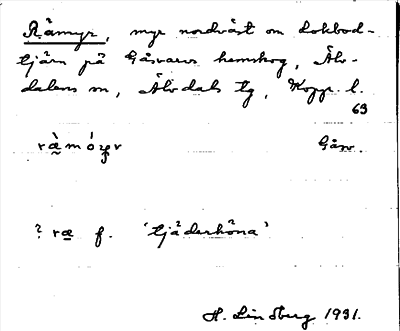 Råmyr, myr nordväst om Lokbod-
tjärn på Gåsvarvs hemskog, Älv-
dalens sn, Älvdals tg, Kopp. l.
63
Gåsv.
? ræ f. 'tjäderhöna'
H. Lindberg 1931.